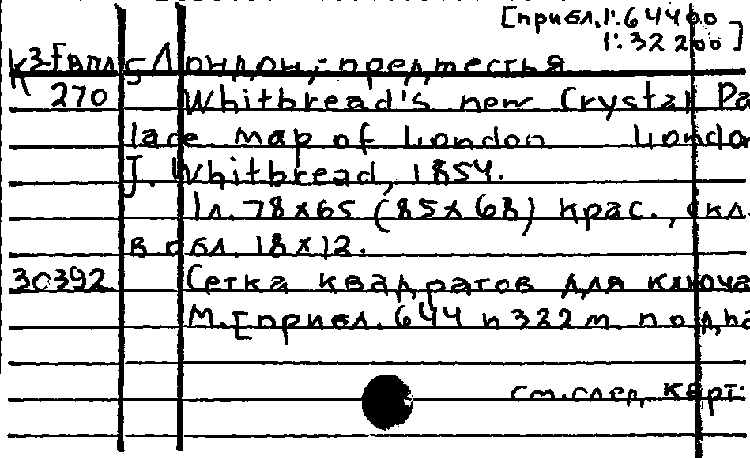 [прибл. 1:64400
1:32200]
К3-Евлл5 Лондон, - предместья
270 Whitbread's new Crystal Pa
lace map of London London
J. Whitbread, 1854.
1л. 78х65 (85х68) крас., скл.
в обл. 18х12.
30392 Сетка квадратов для ключа
М. [прибл. 644 и 322 м. по д
см. след. карт.